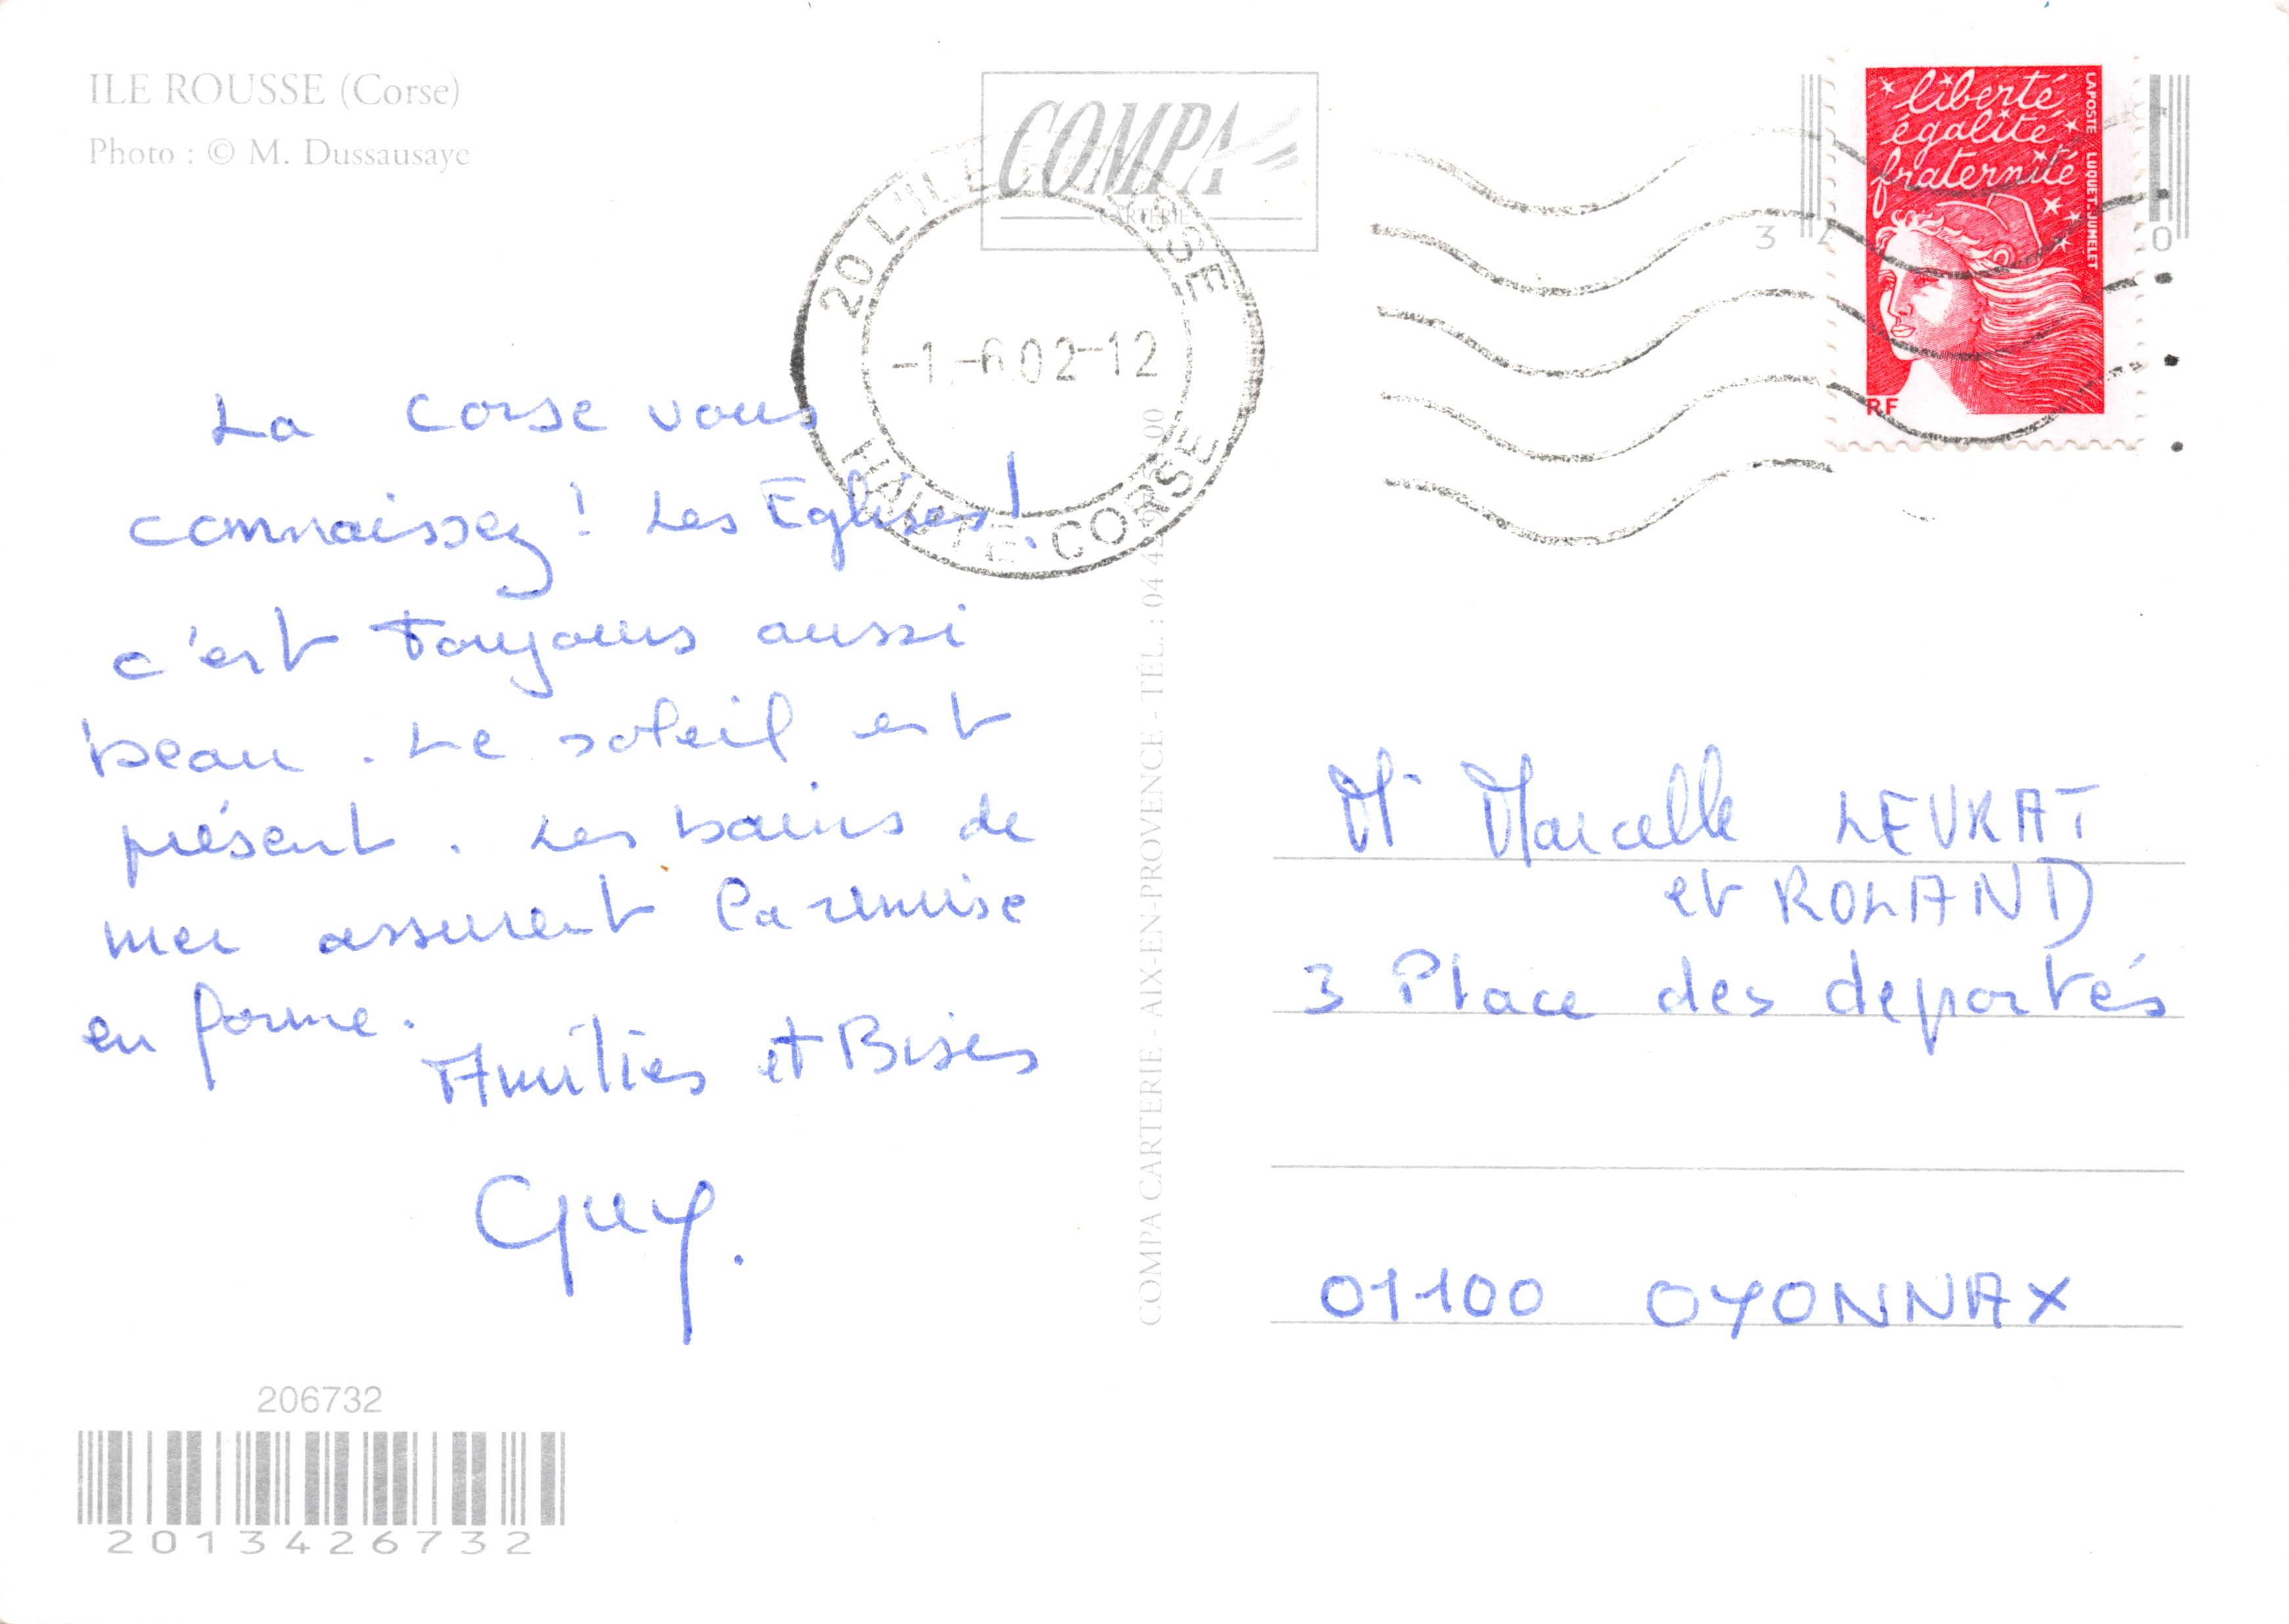 ILE ROUSSE (Corse)
Photo : © M. Dussausaye
COMPA
CARTERIE
20 L'ILE ROUSSE
-1.-6.02-12
HAUTE-CORSE
liberté
égalité
fraternité
LA POSTE LUQUET-JUMELET
RF
3 0
La Corse vous
connaissez ! Les Eglises !
c'est toujours aussi
beau . Le soleil est
présent . Les bains de
mer assurent la remise
en forme .
Amitiés et Bises
Guy.
COMPA CARTERIE - AIX-EN-PROVENCE - TÉL. : 04 4
Mr Marcelle LEVRAT
et ROLAND
3 Place des deportés
01100 OYONNAX
206732
2013426732